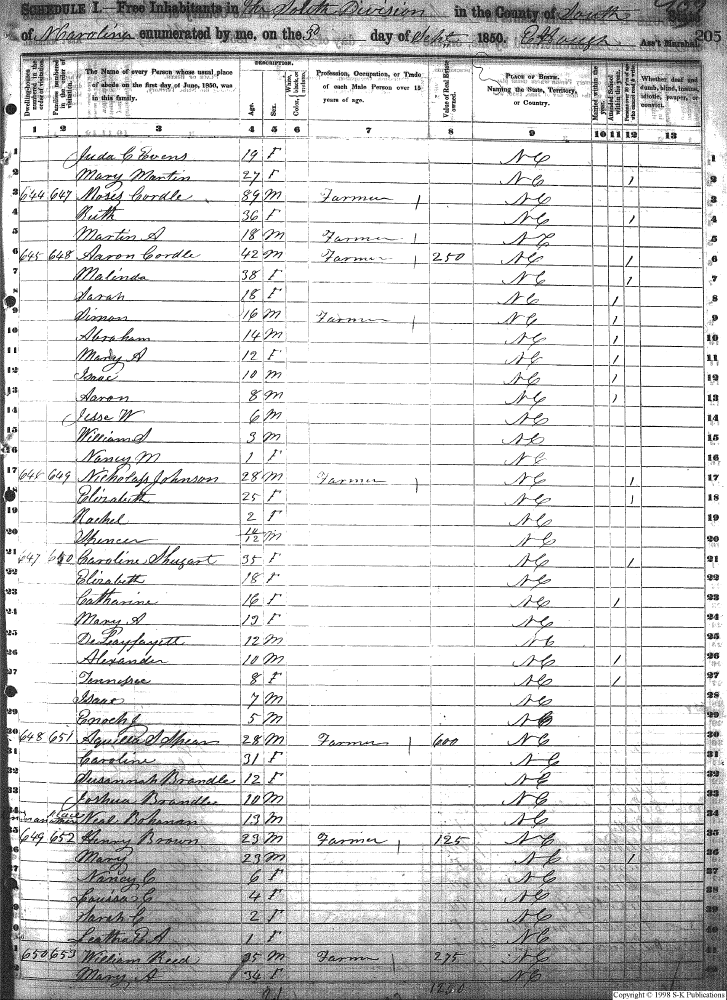 SCHEDULE I.—Free Inhabitants in the South Division in the County of State
of N Carolina enumerated by me, on the 3d day of Sept 1850. Ass't Marshal. 205
DESCRIPTION.
Dwelling-houses numbered in the order of visitation.
Families numbered in the order of visitation.
The Name of every Person whose usual place of abode on the first day of June, 1850, was in this family.
Age.
Sex.
Color, White, black, or mulatto.
Profession, Occupation, or Trade of each Male Person over 15 years of age.
Value of Real Estate owned.
PLACE OF BIRTH. Naming the State, Territory, or Country.
Married within the year.
Attended School within the year.
Persons over 20 y'rs of age who cannot read & write.
Whether deaf and dumb, blind, insane, idiotic, pauper, or convict.
1 2 3 4 5 6 7 8 9 10 11 12 13
1 Juda C Evens 19 F NC 1
2 Mary Martin 27 F NC / 2
3 644 647 Moses Cordle 89 M Farmer NC 3
4 Ruth 36 F NC / 4
5 Martin A 18 M Farmer NC 5
6 645 648 Aaron Cordle 42 M Farmer 250 NC / 6
7 Malinda 38 F NC / 7
8 Sarah 18 F NC / 8
9 Simon 16 M Farmer NC / 9
10 Abraham 14 M NC / 10
11 Mary A 12 F NC / 11
12 Isaac 10 M NC / 12
13 Aaron 8 M NC / 13
14 Jesse W 6 M NC 14
15 William S 3 M NC 15
16 Nancy M 1 F NC 16
17 646 649 Nicholass Johnson 28 M Farmer NC / 17
18 Elizabeth 25 F NC / 18
19 Rachel 2 F NC 19
20 Spencer /12 M NC 20
21 647 650 Caroline Shugart 35 F NC / 21
22 Elizabeth 18 F NC 22
23 Catharine 16 F NC / 23
24 Mary A 13 F NC 24
25 De Leayfayett 12 M NC 25
26 Alexander 10 M NC / 26
27 Tennessee 8 F NC / 27
28 Isaac 7 M NC 28
29 Enoch 5 M NC 29
30 648 651 Aquilla S Spear 28 M Farmer 600 NC 30
31 Caroline 31 F NC 31
32 Susannah Brandle 12 F NC 32
33 Joshua Brandle 10 M NC 33
34 Neal Bohanan 13 M NC 34
35 649 652 Henry Brown 23 M Farmer 125 NC 35
36 Mary 23 M NC / 36
37 Nancy C 6 F NC 37
38 Louisa C 4 F NC 38
39 Sarah C 2 F NC 39
40 A 1 F NC 40
41 650 653 William Reed 35 M Farmer 275 NC 41
42 Mary A 34 F NC 42
Copyright © 1998 S-K Publications